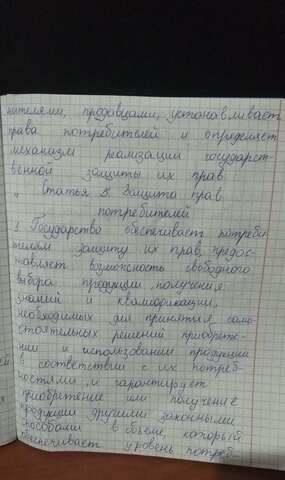 нителями, продавцами, устонавливает
права потребителей и определяет
механизм реализации государст-
венной защиты их прав
Статья 5. Защита прав
потребителей
1. Государство обеспечивает потреби-
телям защиту их прав, предос-
тавляет возможность свободного
выбора продукции, получения
знаний и квалификации,
необходимых для принятия само-
стоятельных решений приобрете-
нии и использовании продукции
в соответствии с их потреб-
ностями, и гарантирует
приобритение или получение
продукции другими законными
способами в объеме, который
обеспечивает уровень потреб-